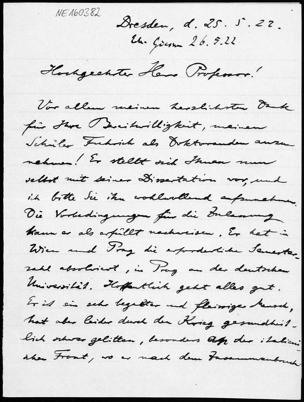 NE160382
Dresden, d. 25. 5. 22.
26.5.22
Hochgeehrter Herr Professor!
Vor allem meinen herzlichsten Dank
für Ihre Bereitwilligkeit, meinen
Schüler als Doktoranden anzu-
nehmen! Er stellt sich Ihnen nun
selbst mit seiner Dissertation vor, und
ich bitte Sie ihn wohlwollend aufzunehmen.
Die Vorbedingungen für die Zulassung
kann er als erfüllt nachweisen. Er hat in
Wien und Prag die erforderliche Semester-
zahl absolviert, in Prag an der deutschen
Universität. Hoffentlich geht alles gut.
Er ist ein sehr begabter und fleissiger Mensch,
hat aber leider durch den Krieg gesundheit-
lich etwas gelitten, besonders an der italieni-
schen Front, wo er nach dem Zusammenbruch